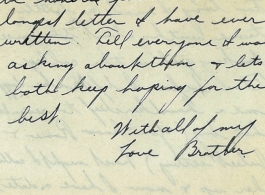 longest letter I have ever
written. Tell everyone I was
asking about them & lets
both keep hoping for the
best.
With all of my
Love Brother